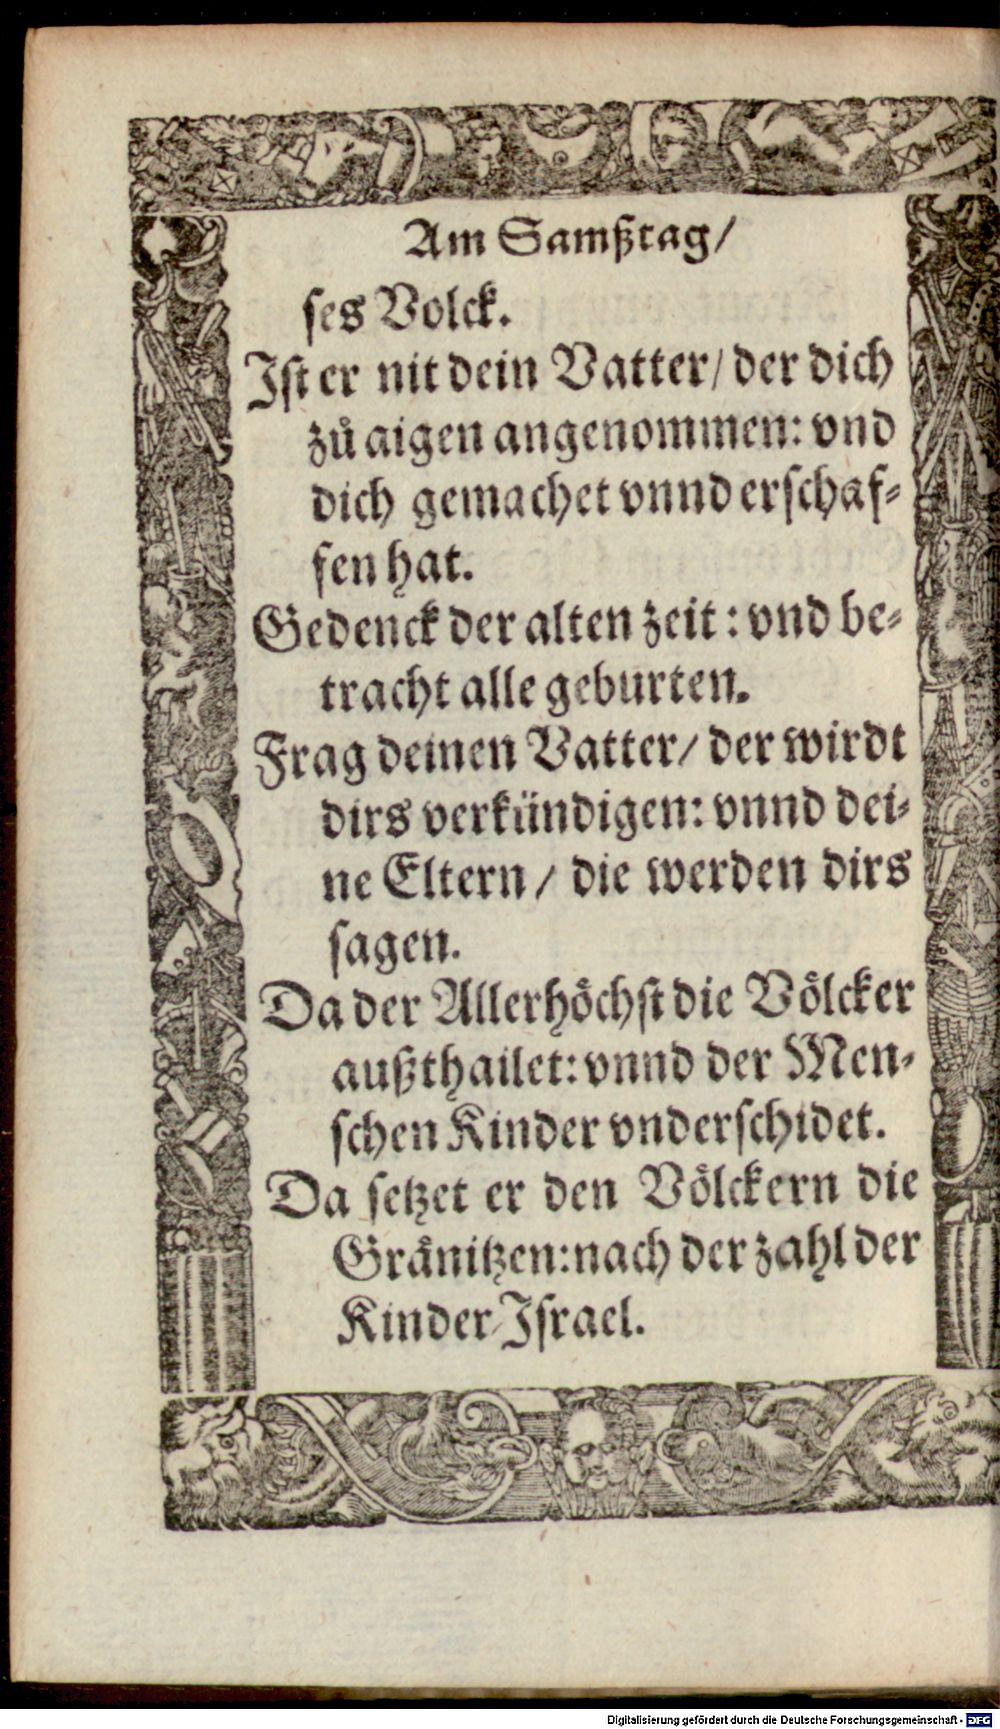 Am Samßtag/
ses Volck.
Ist er nit dein Vatter/ der dich
zů aigen angenommen: vnd
dich gemachet vnnd erschaf-
fen hat.
Gedenck der alten zeit: vnd be-
tracht alle geburten.
Frag deinen Vatter/ der wirdt
dirs verkündigen: vnnd dei-
ne Eltern/ die werden dirs
sagen.
Da der Allerhöchst die Völcker
außthailet: vnnd der Men-
schen Kinder vnderschidet.
Da setzet er den Völckern die
Gränitzen: nach der zahl der
Kinder Israel.
Digitalisierung gefördert durch die Deutsche Forschungsgemeinschaft - DFG